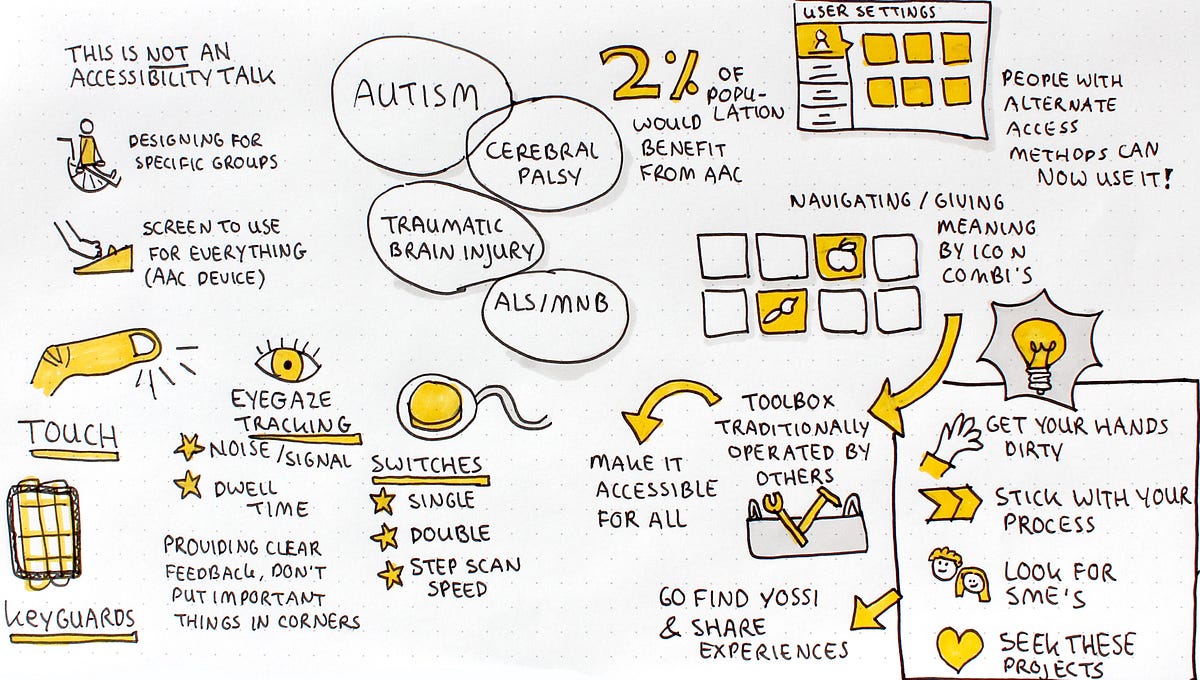 THIS IS NOT AN
ACCESSIBILITY TALK
DESIGNING FOR
SPECIFIC GROUPS
SCREEN TO USE
FOR EVERYTHING
(AAC DEVICE)
AUTISM
CEREBRAL
PALSY
TRAUMATIC
BRAIN INJURY
ALS/MNB
2% OF
POPU-
LATION
WOULD
BENEFIT
FROM AAC
USER SETTINGS
PEOPLE WITH
ALTERNATE
ACCESS
METHODS CAN
NOW USE IT!
NAVIGATING / GIVING
MEANING
BY ICON
COMBI'S
TOUCH
KEYGUARDS
EYEGAZE
TRACKING
NOISE/SIGNAL
DWELL
TIME
PROVIDING CLEAR
FEEDBACK, DON'T
PUT IMPORTANT
THINGS IN CORNERS
SWITCHES
SINGLE
DOUBLE
STEP SCAN
SPEED
TOOLBOX
TRADITIONALLY
OPERATED BY
OTHERS
MAKE IT
ACCESSIBLE
FOR ALL
GET YOUR HANDS
DIRTY
STICK WITH YOUR
PROCESS
LOOK FOR
SME'S
SEEK THESE
PROJECTS
GO FIND YOSSI
& SHARE
EXPERIENCES